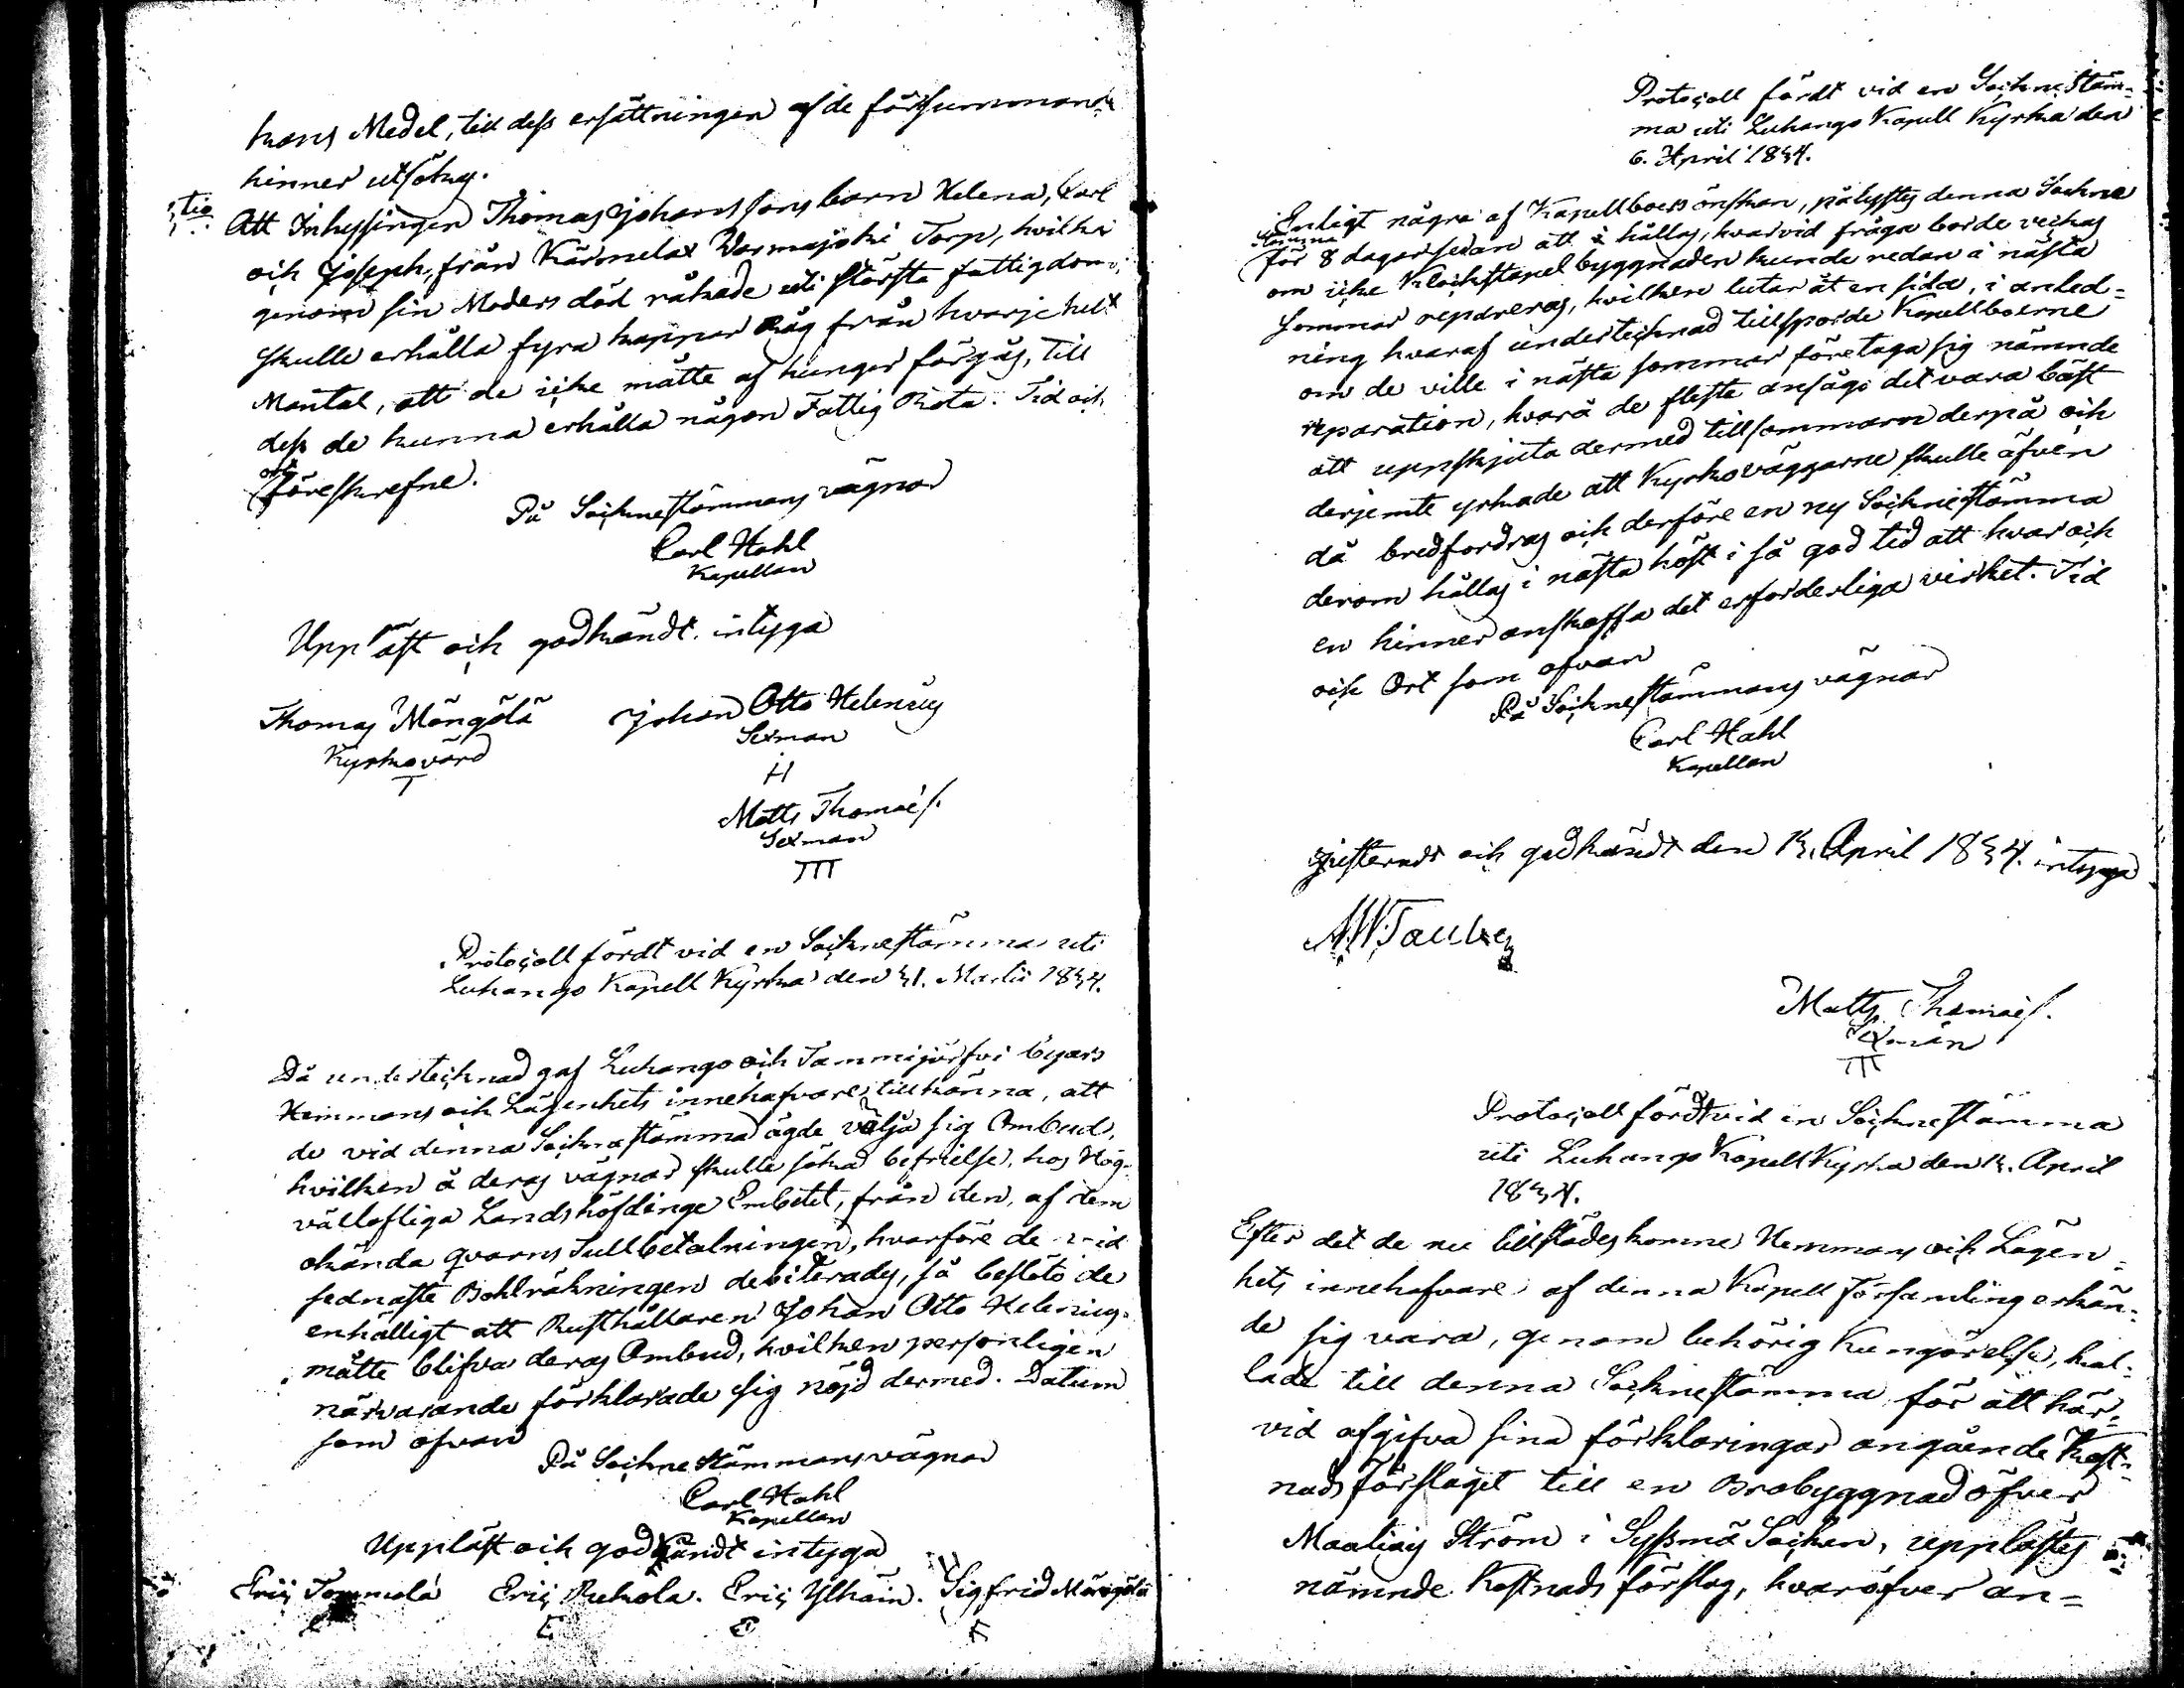 hans Medel, till dess ersättningen af de försummande
hinner utsökas.
5,tio Att Inhysingen Thomas Johanssons barn Helena, Carl
och Joseph, från Kärnelax Warmajoki Torp, hvilka
genom sin Moders död råkade uti största fattigdom,
skulle erhålla fyra kappar Råg från hvarje helt
Mantal, att de icke måtte af hunger förgås, till
dess de kunna erhålla någon Fattig Rota. Tid och
ort
föreskrefne.
På Socknestämmans vägnar
Carl Hahl
Kapellan
Uppläst och godkändt, intyga
Thomas Mängälä Johan Otto Helenius
Kyrkovärd Sexman
T H
Matts Thomæs.
Sexman
TTT
Protocoll fördt vid en Socknestämma uti
Luhango Kapell Kyrka den 31. Martii 1834.
Då undertecknad gaf Luhango och Tammijärfvi byars
Hemmans och Lägenhets innehafvare tillkänna, att
de vid denna Sockne stämma ägde välja sig Ombud,
hvilken å deras vägnar skulle söka befrielse, hos Hög-
vällofliga Landshöfdinge Embetet, från den, af dem
okända qvarns Tullbetalningen, hvarföre de vid
sednaste Bohlräkningen debiterades, så beslöto de
enhälligt att Rusthållaren Johan Otto Helenius
måtte blifva deras Ombud, hvilken personligen
närvarande förklarade sig nöjd dermed. Datum
som ofvan
På Sockne stämmans vägnar
Carl Hahl
Kapellan
Uppläst och godkändt intyga
Eric Tommola Eric Ruhola. Eric Ylhäin. Sigfrid Mängälä
Protocoll fördt vid en Sockne Stäm-
ma uti Luhango Kapell Kyrka den
6. April 1834.
Enligt några af Kapellboers önskan, pålystes denna Sockne
stämma
för 8 dagar sedan att hållas, hvarvid fråga borde veckas
om icke Klockstapel byggnaden kunde redan i nästa
sommar repareras, hvilken lutar åt en sida, i anled-
ning hvaraf undertecknad tillsporde Kapellboerne
om de ville i nästa sommar företaga sig nämnde
reparation, hvarå de fleste ansågo det vara bäst
att uppskjuta dermed till sommarn derpå och
derjemte yrkade att Kyrkoväggarne skulle äfven
då bredfodras och derföre en ny Sockne stämma
derom hållas i nästa höst i så god tid att hvar och
en hinner anskaffa det erforderliga virket. Tid
och Ort som ofvan
På Sockne stämmans vägnar
Carl Hahl
Kapellan
Justeradt och godkändt den 13. April 1834. intyga
Matts Thomæs.
Sexman
TTT
Protocoll fördt vid en Sockne stämma
uti Luhango Kapell Kyrka den 13. April
1834.
Efter det de nu tillstädes komne Hemmans och Lägen-
hets innehafvare af denna Kapell Församling erkän-
de sig vara, genom behörig Kungörelse, kal-
lade till denna Sockne stämma för att här-
vid afgifva sina förklaringar angående Kost-
nads förslaget till en Brobyggnad öfver
Maaliais Ström i Sysmä Socken, upplästes
nämnde Kostnads förslag, hvaröfver an-